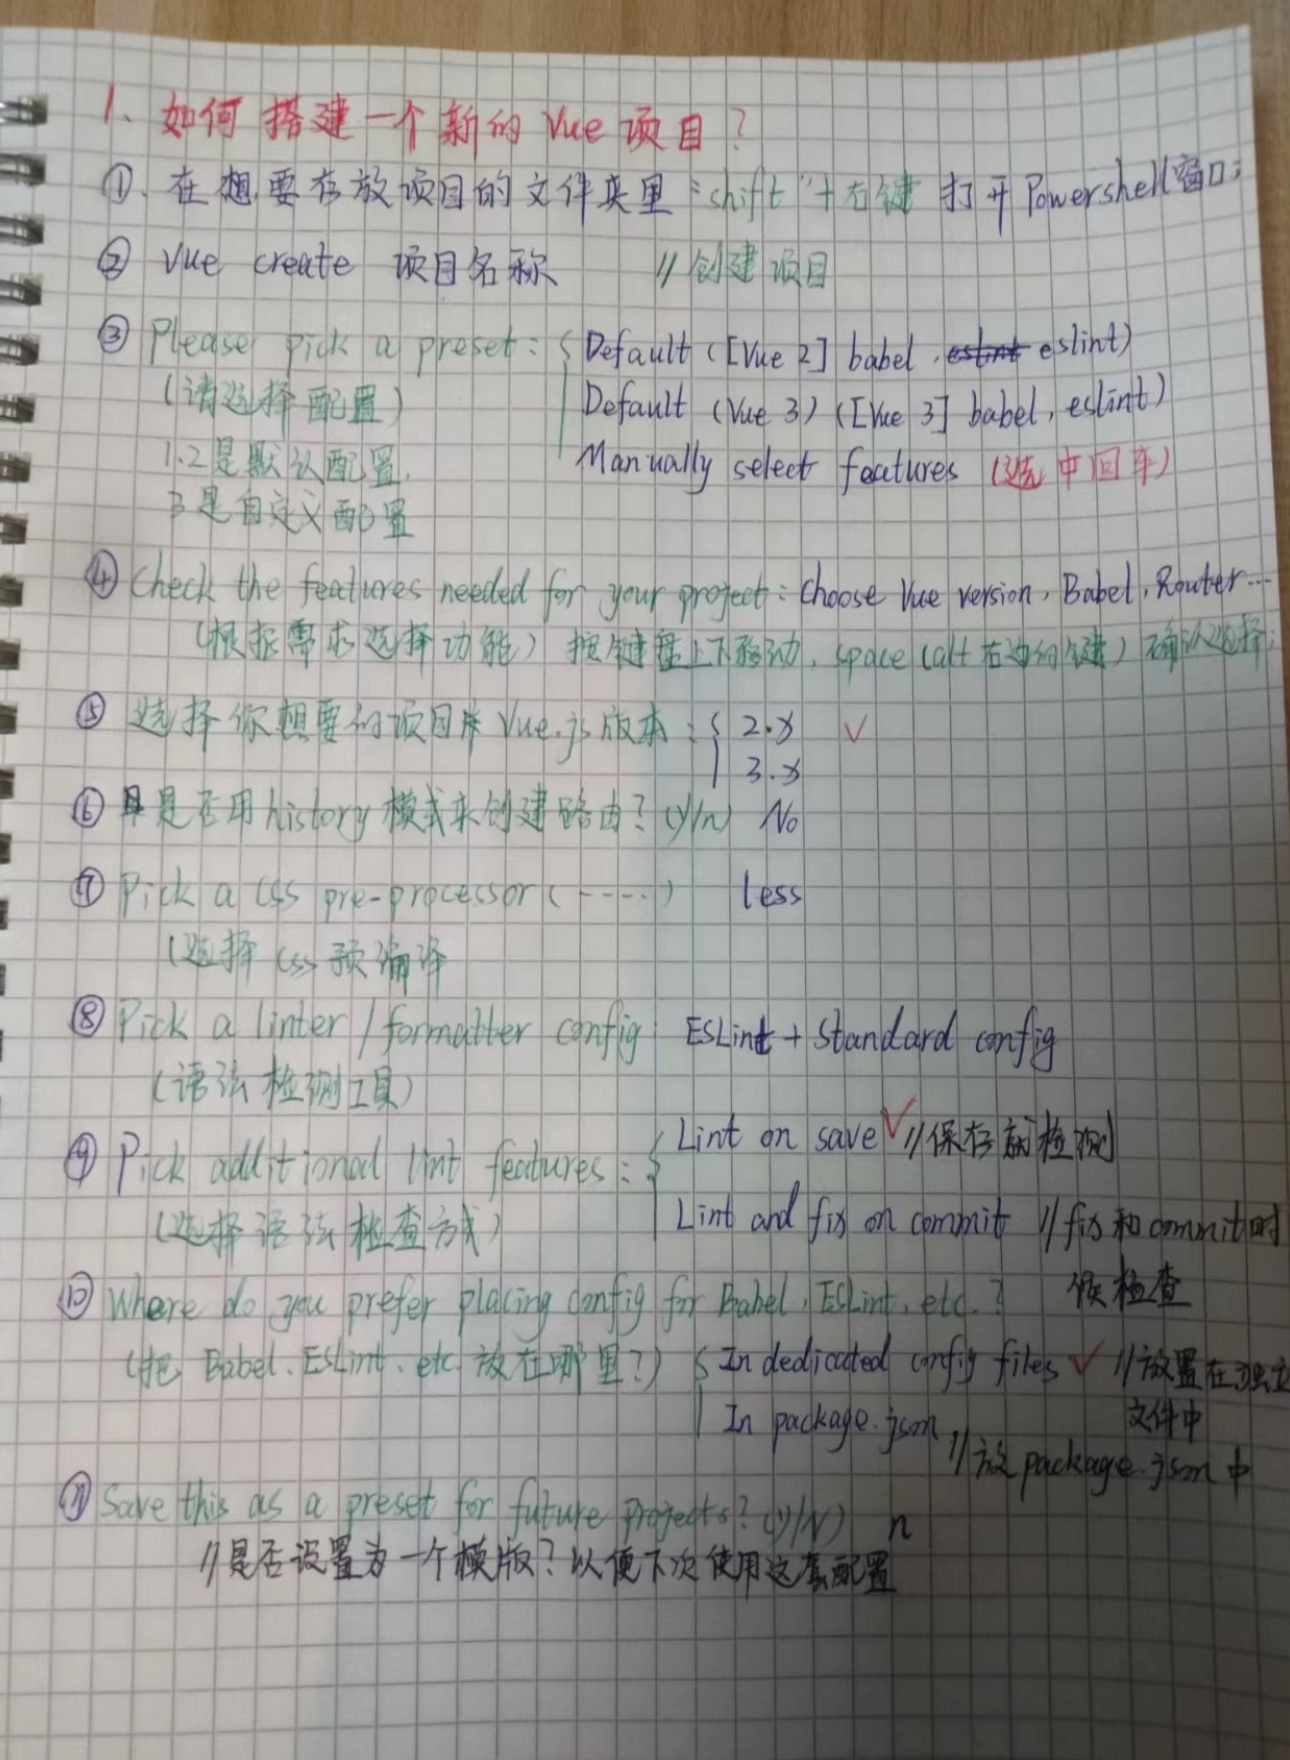 1、如何搭建一个新的Vue项目?
①、在想要存放项目的文件夹里“shift”+右键 打开Powershell窗口;
② Vue create 项目名称 //创建项目
③ Please pick a preset: Default ([Vue 2] babel, eslint)
(请选择配置) Default (Vue 3) ([Vue 3] babel, eslint)
1.2是默认配置. Manually select features (选中回车)
3是自定义配置
④ Check the features needed for your project: Choose Vue version, Babel, Router...
(根据需求选择功能) 按键盘上下移动, space (alt右边的键) 确认选择;
⑤ 选择你想要的项目库Vue.js版本: 2.x ✓
3.x
⑥ 是否用history模式来创建路由? (y/n) No
⑦ Pick a CSS pre-processor (-----) less
(选择css预编译
⑧ Pick a linter / formatter config: ESLint + Standard config
(语法检测工具)
⑨ Pick additional lint features: Lint on save ✓ //保存就检测
(选择语法检查方式) Lint and fix on commit //fix和commit时
候检查
⑩ Where do you prefer placing config for Babel, ESLint, etc.?
(把 Babel、ESLint、etc 放在哪里?) In dedicated config files ✓ //放置在独立
文件中
In package.json //放package.json中
⑪ Save this as a preset for future projects? (y/N) n
//是否设置为一个模版? 以便下次使用这套配置